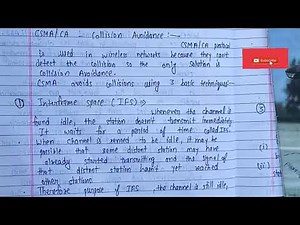 CSMA/CA - Collision Avoidance :-
CSMA/CA protocol
is used in wireless networks because they can't
detect the collision so the only solution is
collision Avoidance.
CSMA avoids collisions using 3 basic techniques-
① Interframe space (IFS) ⇒
Whenever the channel is
found idle, the station doesn't transmit immediately
It waits for a period of time called IFS.
When channel is sensed to be idle, it may be
possible that some distant station may have
already started transmitting and the signal of
that distant station hasn't yet reached
other stations.
Therefore purpose of IFS, the channel is still idle,
(i)
(ii)